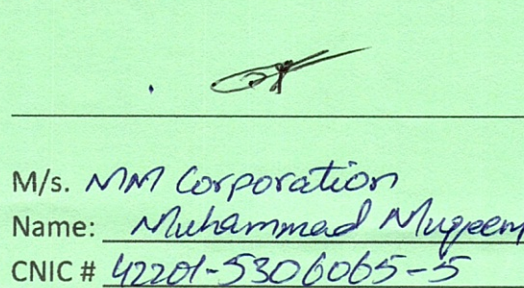 M/s. MM Corporation
Name: Muhammad Muqeem
CNIC # 42201-5306065-5